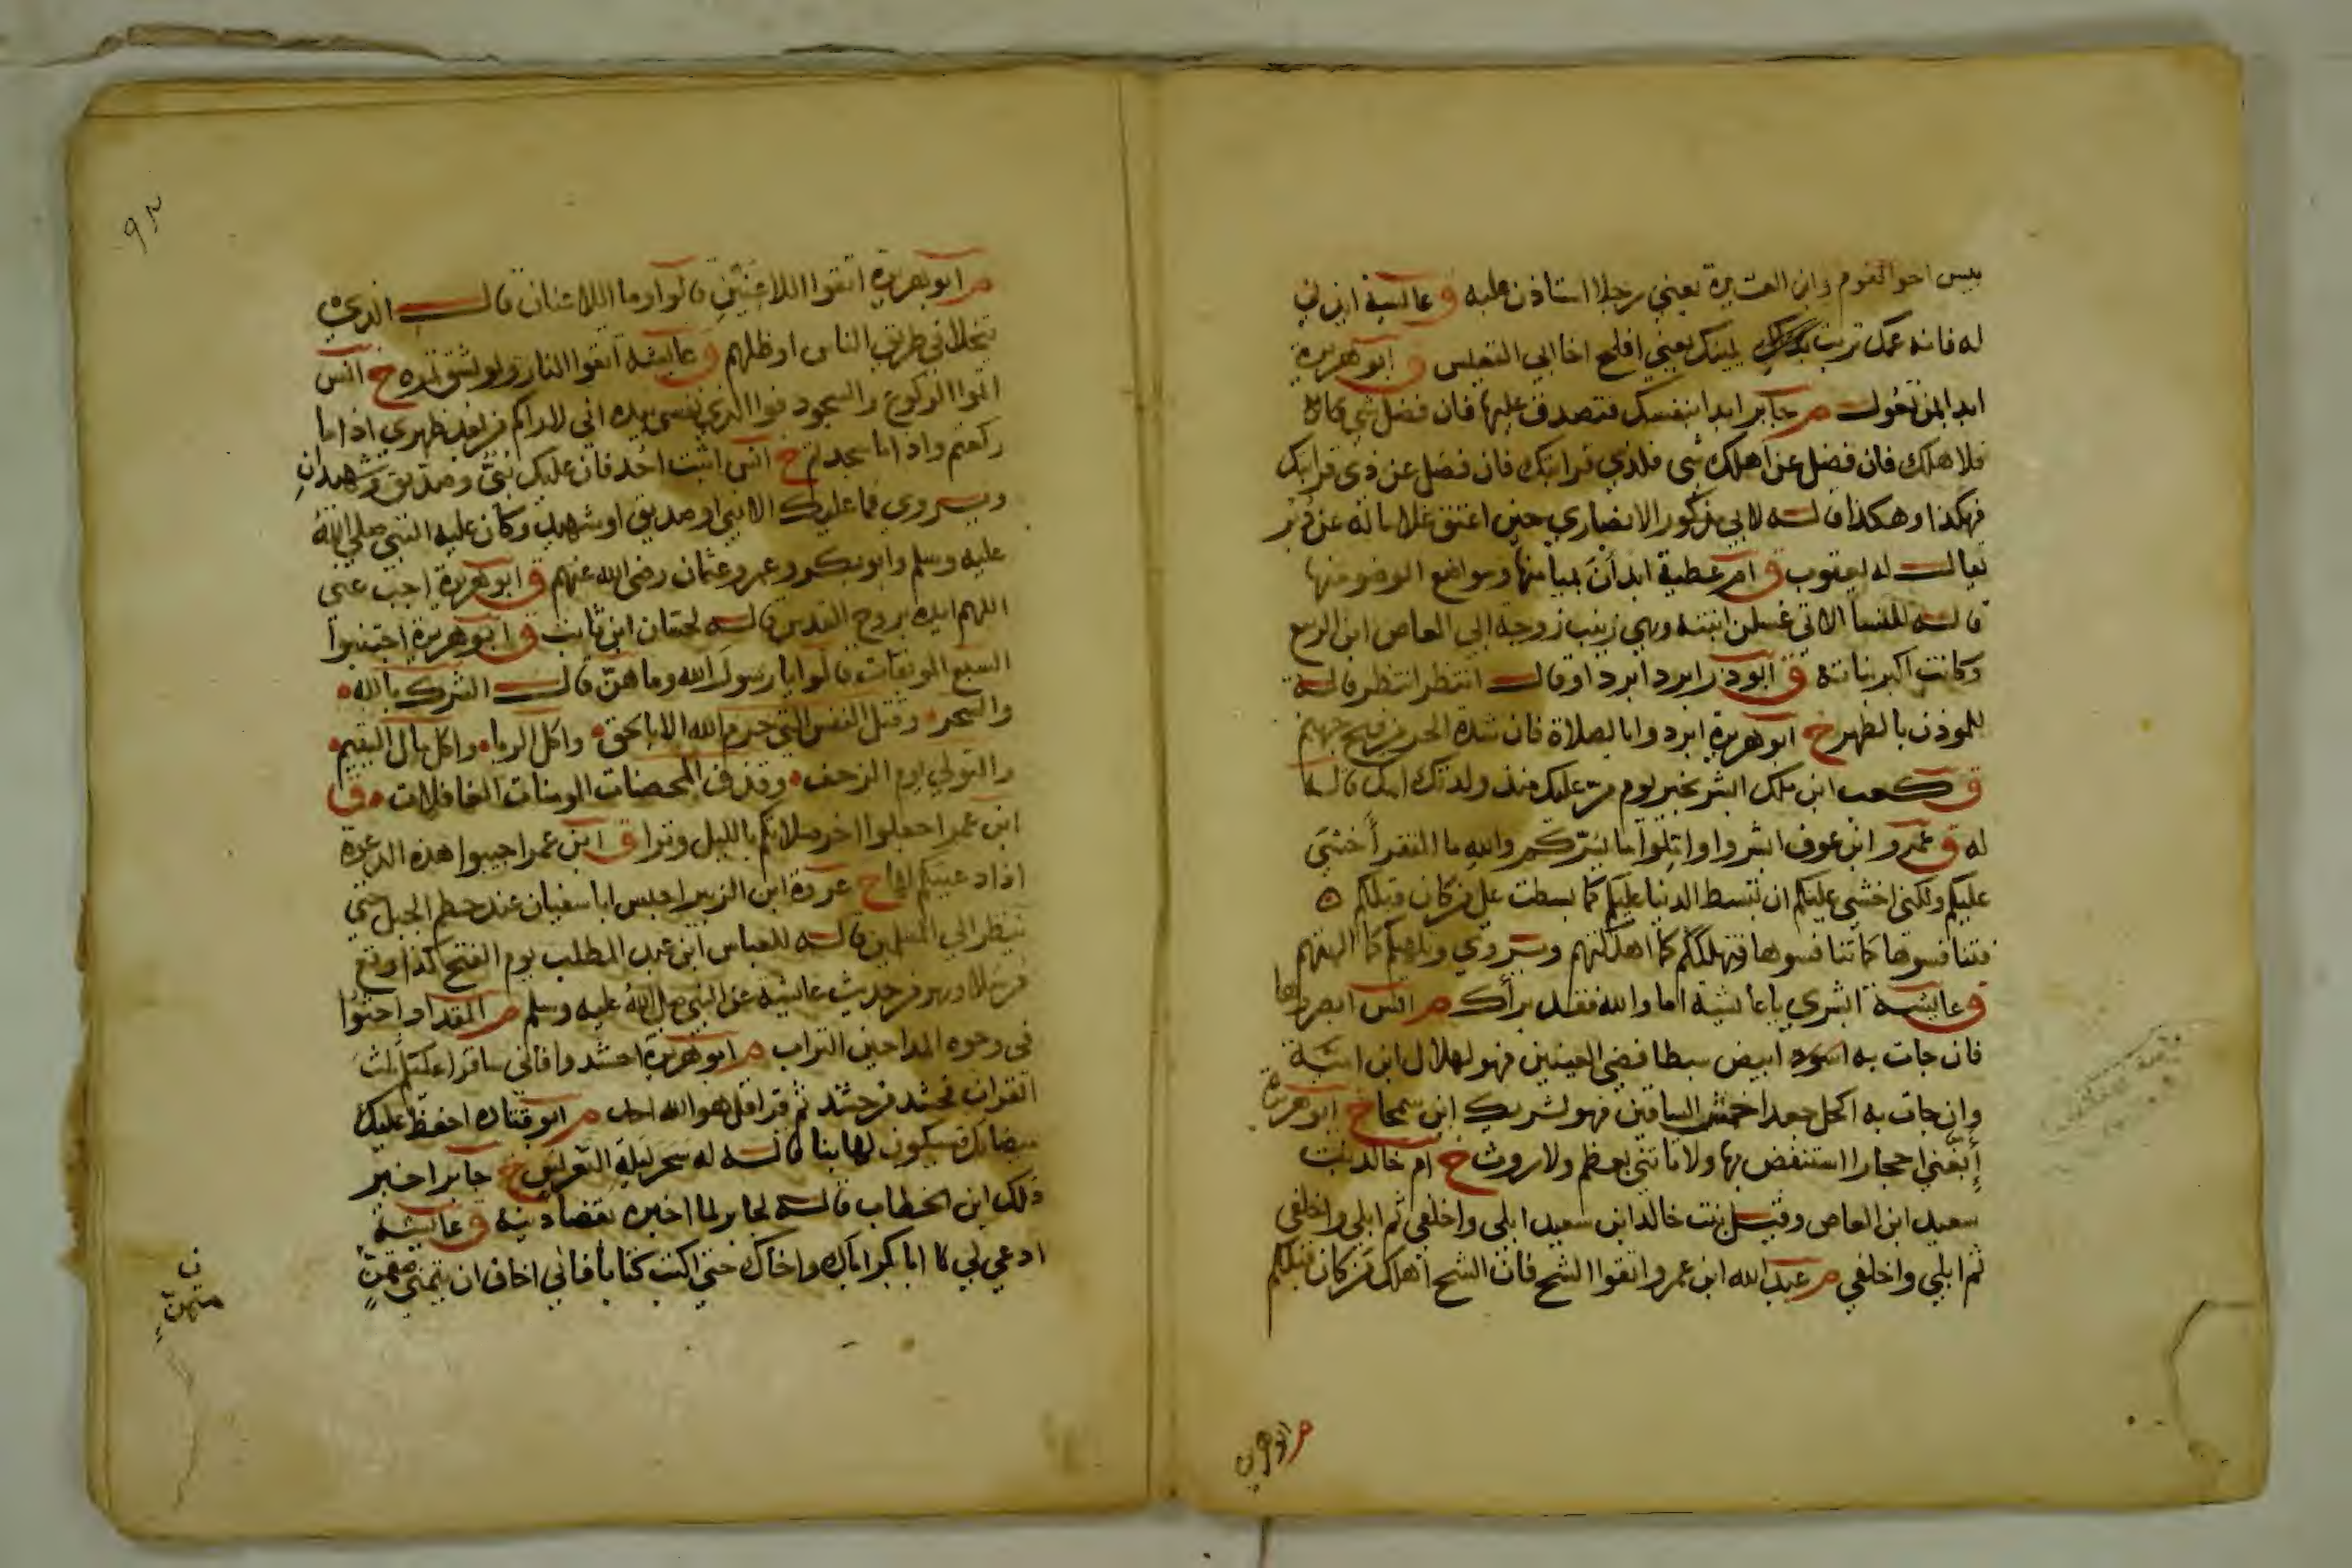 بيس اخو القوم وابن العشيرة يعني رجلا استاذن عليه ق عائشة ايذني
له فانه عمك تربت يمينك يعني افلح اخا ابي القعيس ق ابو هريرة
ابدا بمن تعول م جابر ابدا بنفسك فتصدق عليها فان فضل شي
فلاهلك فان فضل عن اهلك شي فلذي قرابتك فان فضل عن ذي قرابتك
فهكذا وهكذا قاله لابي مذكور الانصاري حين اعتق غلاما له عن دبر
يقال له يعقوب ق ام عطية ابدان بميامنها ومواضع الوضو منها
قاله للنسا الاتي غسلن ابنته وهي زينب زوجة ابي العاص ابن الربيع
وكانت اكبر بناته ق ابو ذر ابرد ابرد او قال انتظر انتظر قاله
للموذن بالظهر خ ابو هريرة ابردوا بالصلاة فان شدة الحر من فيح جهنم
ق كعب ابن ملك ابشر بخير يوم مر عليك منذ ولدتك امك قاله
له ق عمرو ابن عوف ابشروا واملوا ما يسركم والله ما الفقر اخشي
عليكم ولكني اخشي عليكم ان تبسط الدنيا عليكم كما بسطت علي من كان قبلكم
فتنافسوها كما تنافسوها فتهلككم كما اهلكتهم ويروي وتلهيكم كما الهتهم
ق عائشة ابشري يا عائشة اما والله فقد براك م انس ابصروها
فان جات به ابيض سبطا قضي العينين فهو لهلال ابن امية
وان جات به اكحل جعدا حمش الساقين فهو لشريك ابن سمحا خ ابو هريرة
ابغني احجارا استنفض بها ولا تاتني بعظم ولا روث خ ام خالد بنت
سعيد ابن العاص وقيل بنت خالد ابن سعيد ابلي واخلقي ثم ابلي واخلقي
ثم ابلي واخلقي م عبد الله ابن عمرو اتقوا الشح فان الشح اهلك من كان قبلكم
م ابو هريرة
٩٢
م ابو هريرة اتقوا اللاعنين قالوا وما اللاعنان قال الذي
يتخلا في طريق الناس او ظلهم ق عائشة اتقوا النار ولو بشق تمرة خ انس
اتموا الركوع والسجود فوا الذي نفسي بيده اني لاراكم من بعد ظهري اذا ما
ركعتم واذا ما سجدتم خ انس اثبت احد فان عليك نبي وصديق وشهيدان
ويروي فما عليك الا نبي او صديق او شهيد وكان عليه النبي صلي الله
عليه وسلم وابو بكر وعمر وعثمان رضي الله عنهم ق ابو هريرة اجب عني
اللهم ايده بروح القدس قاله لحسان ابن ثابت ق ابو هريرة اجتنبوا
السبع الموبقات قالوا يا رسول الله وما هن قال الشرك بالله
والسحر وقتل النفس التي حرم الله الا بالحق واكل الربا واكل مال اليتيم
والتولي يوم الزحف وقذف المحصنات المومنات الغافلات ق
ابن عمر اجعلوا اخر صلاتكم بالليل وترا ق ابن عمر اجيبوا هذه الدعوة
اذا دعيتم لها خ عروة ابن الزبير احبس ابا سفيان عند حطم الجبل حتي
ينظر الي المسلمين قاله للعباس ابن عبد المطلب يوم الفتح كذا وقع
مرسلا وهو من حديث عائشة عن النبي صلي الله عليه وسلم م المقداد احثوا
في وجوه المداحين التراب م ابو هريرة احشدوا فاني ساقرا عليكم ثلث
القران فحشد من حشد ثم قرا قل هو الله احد م ابو قتادة احفظ عليك
ميضاتك فسيكون لها نبا قاله له سحر ليلة التعريس خ جابر اخبر
ذلك ابن الخطاب قاله لجابر لما اخبره بقضا دينه ق عائشة
ادعي لي ابا بكر اباك واخاك حتي اكتب كتابا فاني اخاف ان يتمني متمن
ن
متمن